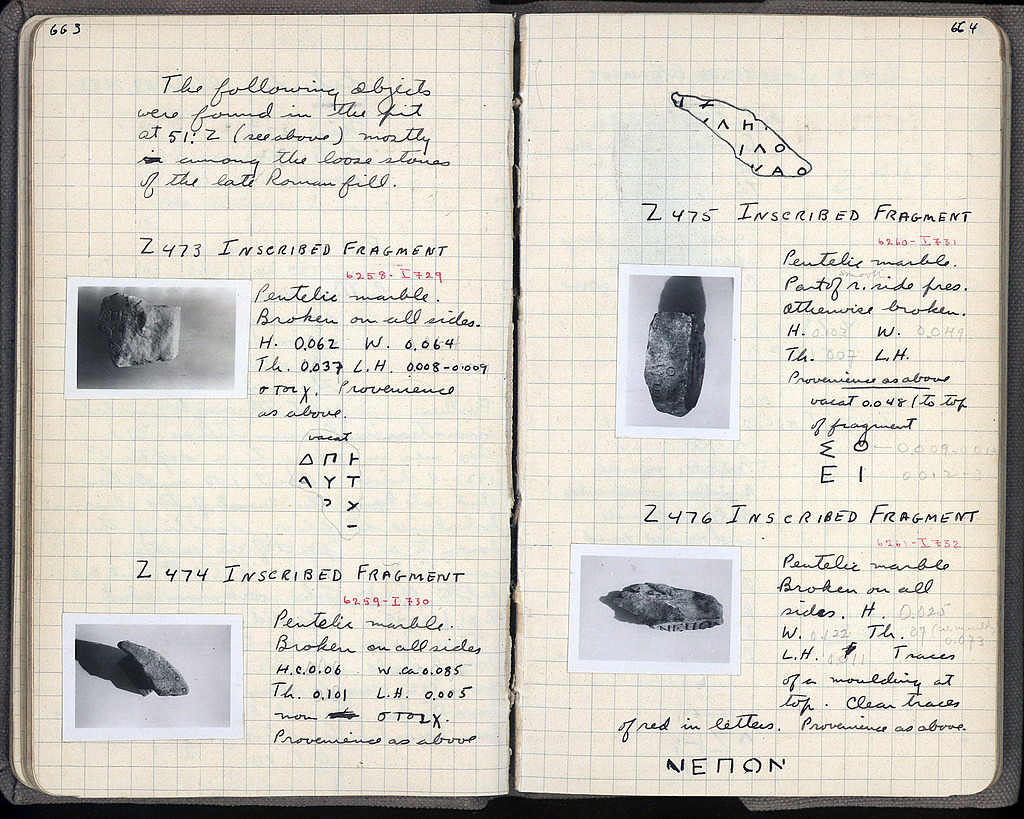 663
The following objects
were found in the pit
at 51:Z (see above) mostly
among the loose stones
of the late Roman fill.
Z 473 INSCRIBED FRAGMENT
6258-I 729
Pentelic marble.
Broken on all sides.
H. 0.062 W. 0.064
Th. 0.037 L.H. 0.008-0.009
στοιχ. Provenience
as above.
vacat
Δ Π Ͱ
Λ Υ Τ
Z 474 INSCRIBED FRAGMENT
6259-I 730
Pentelic marble.
Broken on all sides
H. c. 0.06 W. ca 0.085
Th. 0.101 L.H. 0.005
non στοιχ.
Provenience as above
664
Λ Η
Ι Λ Ο
Α Ο
Z 475 INSCRIBED FRAGMENT
6260-I 731
Pentelic marble.
smooth
Part of r. side pres.
otherwise broken.
H. 0.103 W. 0.049
Th. 007 L.H.
Provenience as above
vacat 0.048 / to top
of fragment
Σ Ο
Ε Ι
Z 476 INSCRIBED FRAGMENT
6261-I 732
Pentelic marble
Broken on all
sides. H. 0.025
W. 0.122 Th. 07
0.073
L.H. 0.011 Traces
of a moulding at
top. Clear traces
of red in letters. Provenience as above.
ΝΕΠΟΝ